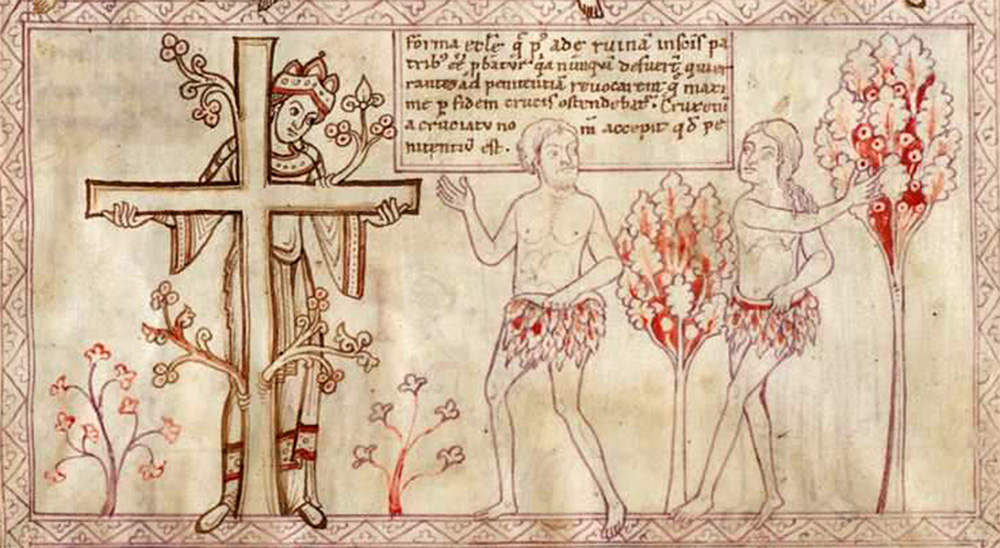 forma eccl̄e q̄ p̄ ade ruinā in sc̄is pa
trib; eē ꝓbatur q̄a nūnquā defuer̄t qui er
rantes ad penitentiā reuocarent q̄ maxi
me ꝑ fidem crucis ostendebat᷑. Crux eni
a cruciatu no m̄ accepit qd̄ pe
nitentiū est.